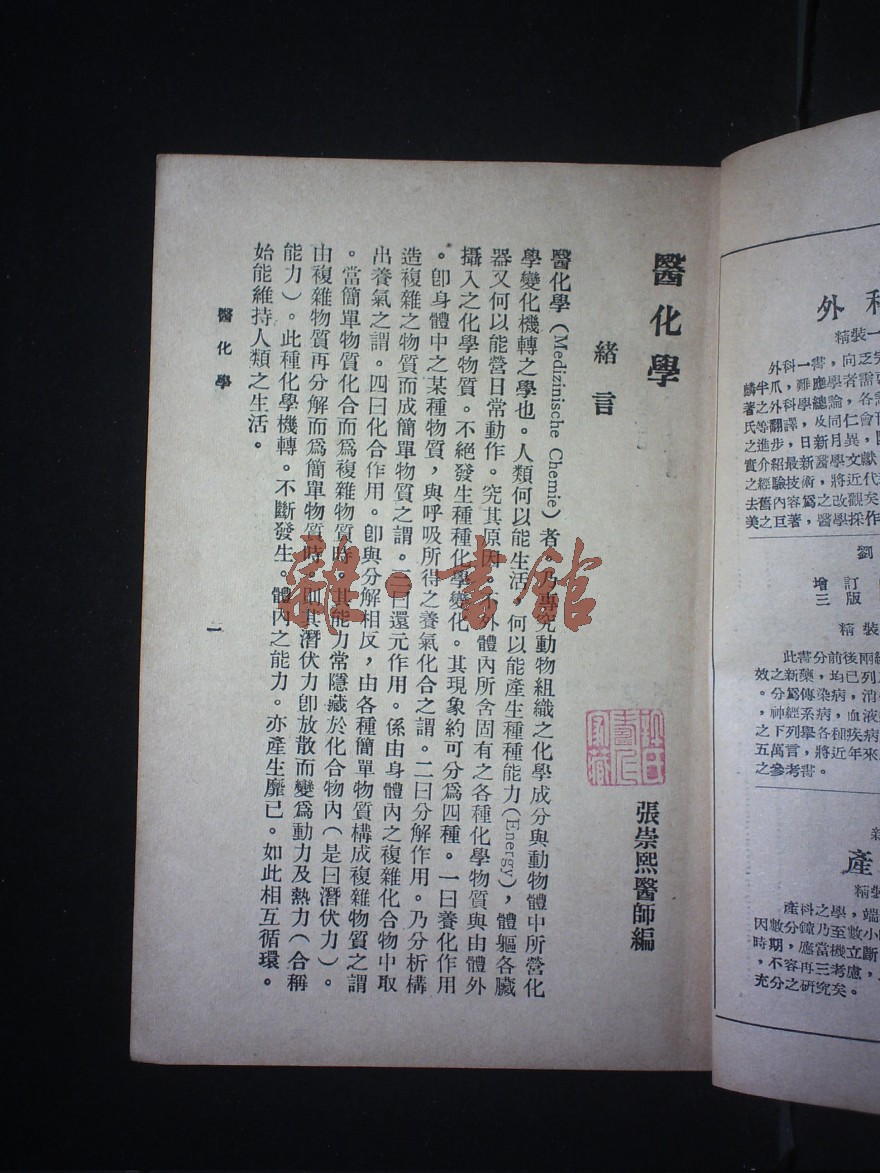 醫化學
緒言
張崇熙醫師編
醫化學（Medizinische Chemie）者。乃專究動物組織之化學成分與動物體中所營化
學變化機轉之學也。人類何以能生活 何以能產生種種能力(Energy)，體軀各臟
器又何以能營日常動作。究其原因。不外體內所含固有之各種化學物質與由體外
攝入之化學物質。不絕發生種種化學變化。其現象約可分爲四種。一曰養化作用
。卽身體中之某種物質，與呼吸所得之養氣化合之謂。二曰分解作用。乃分析構
造複雜之物質而成簡單物質之謂。三曰還元作用。係由身體內之複雜化合物中取
出養氣之謂。四曰化合作用。卽與分解相反，由各種簡單物質構成複雜物質之謂
。當簡單物質化合而爲複雜物質時。其能力常隱藏於化合物內（是曰潛伏力）。
由複雜物質再分解而爲簡單物質時。則其潛伏力卽放散而變爲動力及熱力（合稱
能力）。此種化學機轉。不斷發生。體內之能力。亦產生靡已。如此相互循環。
始能維持人類之生活。
醫化學
一
雜·書館
外科
精裝一
外科一書，向乏完
麟半爪，難應學者需
著之外科學總論，各
氏等翻譯，及同仁會刊
之進步，日新月異，
實介紹最新醫學文獻，
之經驗技術，將近代
去舊內容爲之改觀矣
美之巨著，醫學採作
劉
增訂
三版
精裝
此書分前後兩
效之新藥，均已列
。分爲傳染病，消
，神經系病，血液
之下列舉各種疾病
五萬言，將近年來
之參考書。
產
精裝
產科之學，端
因數分鐘乃至數小
時期，應當機立斷
，不容再三考慮，
充分之研究矣。